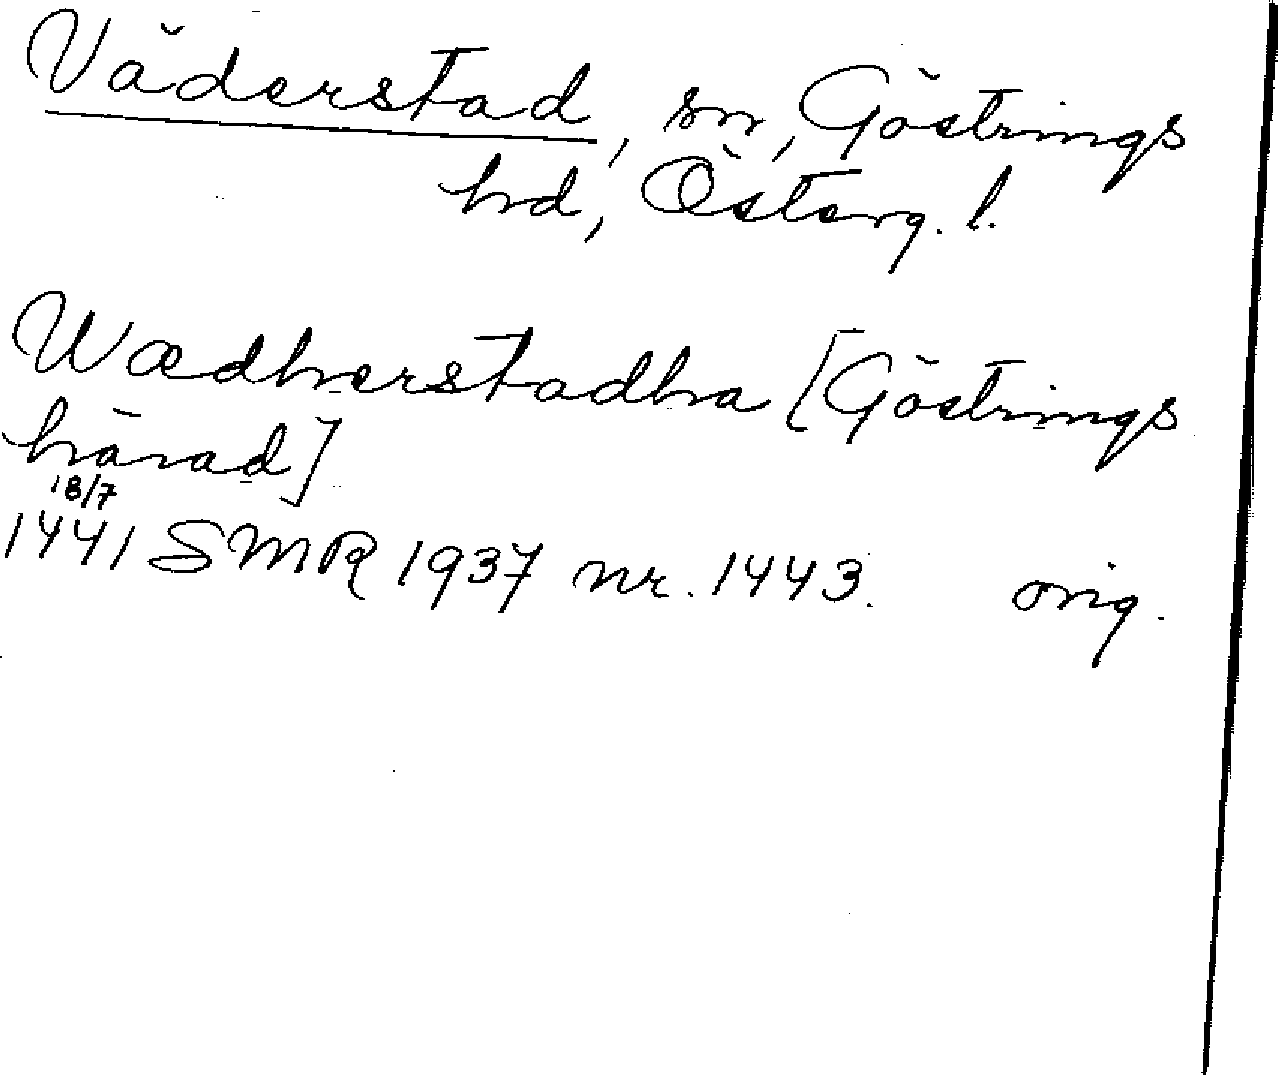 Väderstad, sn, Göstrings
hd, Österg. l.
Wædherstadha [Göstrings
härad]
18/7
1441 SMR 1937 nr. 1443. orig.